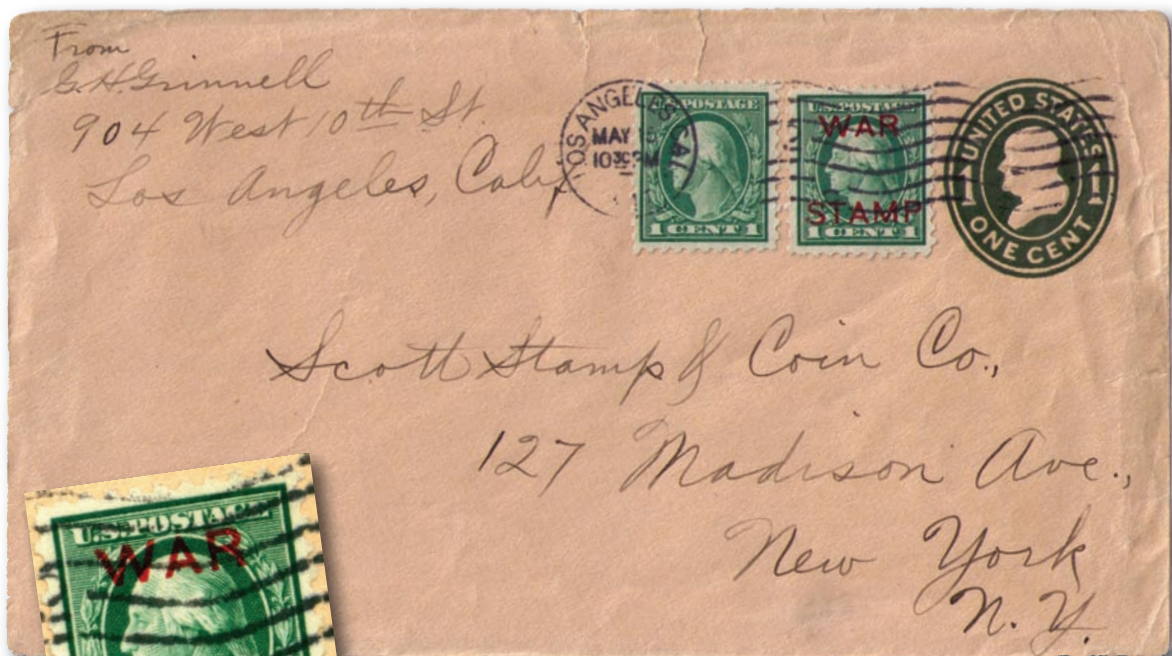 From
G.H. Grinnell
904 West 10th St.
Los Angeles, Calif
LOS ANGELES, CAL
MAY
1030PM
U.S. POSTAGE
1 CENT 1
U.S. POSTAGE
WAR
STAMP
1 CENT 1
UNITED STATES
1 1
ONE CENT
Scott Stamp & Coin Co.,
127 Madison Ave.,
New York
N.Y.
U.S. POSTAGE
WAR